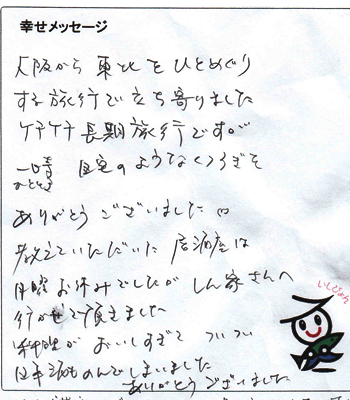 幸せメッセージ
大阪から東北をひとめぐり
する旅行で立ち寄りました
ケチケチ長期旅行ですが
一時 自宅のようなくつろぎを
ひととき
ありがとうございました
教えていただいた居酒屋は
日曜お休みでしたが しん家さんへ
行かせて頂きました
料理がおいしすぎて ついつい
日本酒ものんでしまいました
ありがとうございました